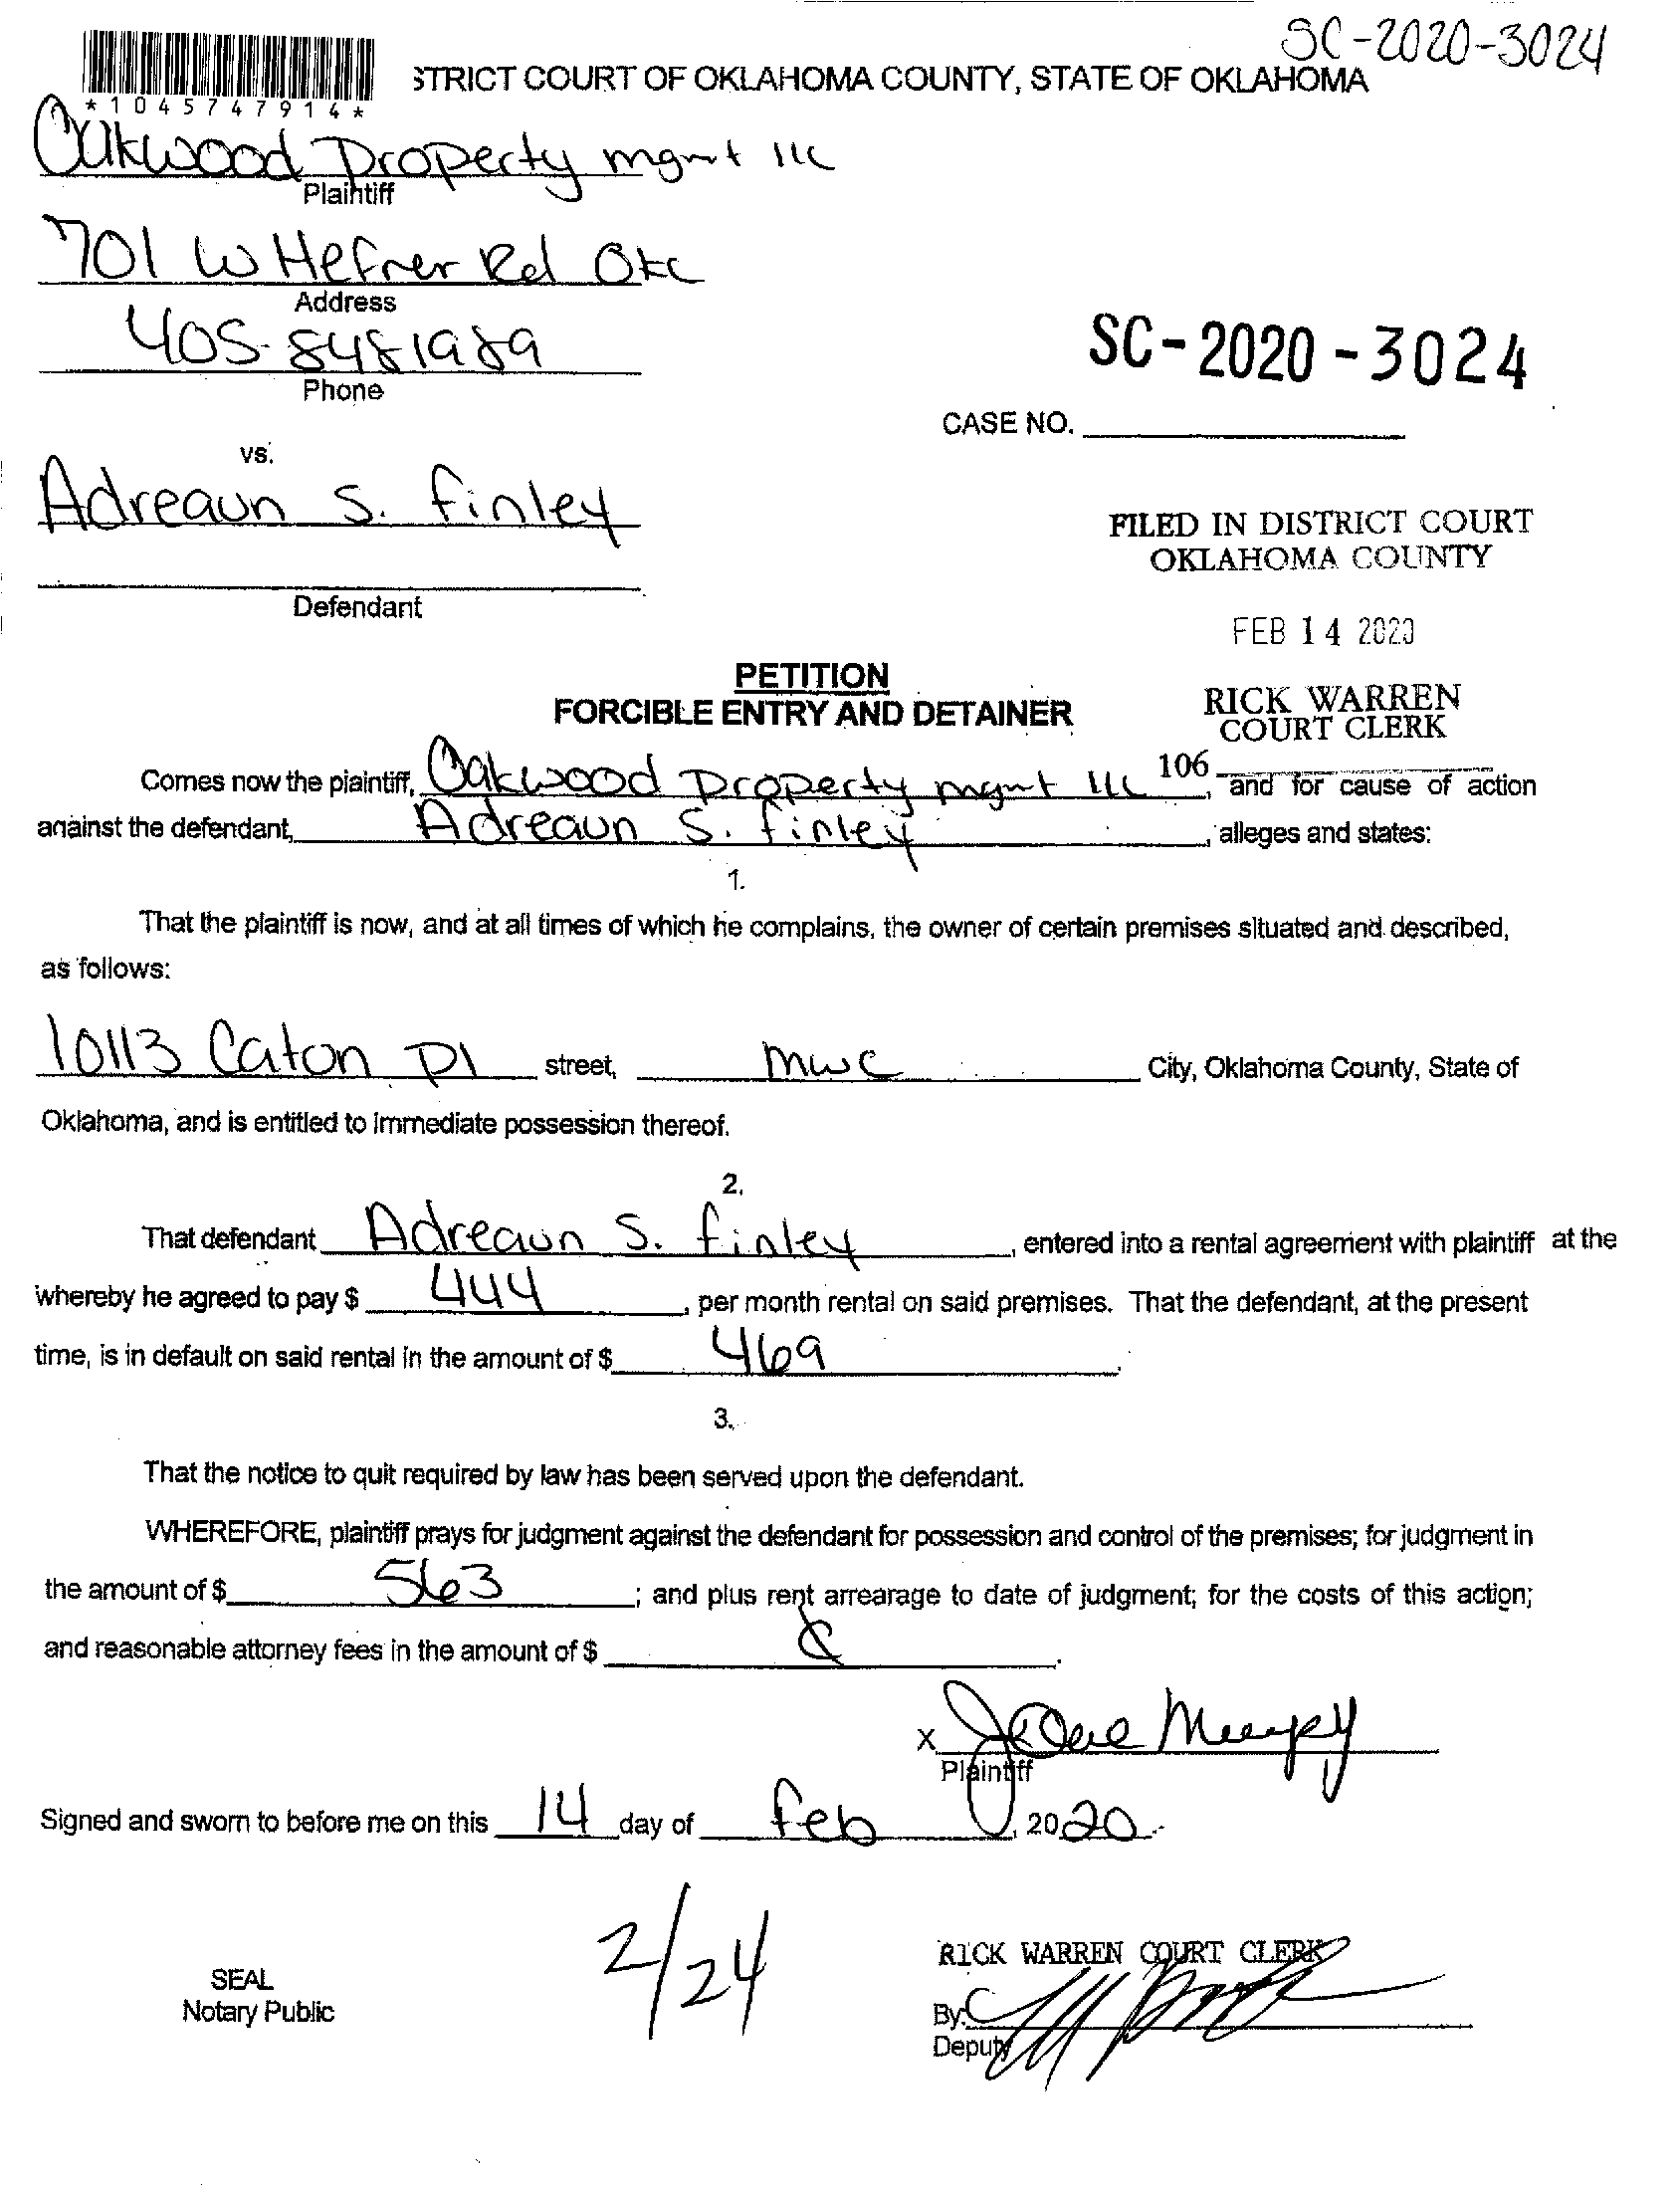 SC-2020-3024
STRICT COURT OF OKLAHOMA COUNTY, STATE OF OKLAHOMA
*1045747914*
Oakwood Property mgmt llc
Plaintiff
701 W Hefner Rd OKC
Address
405-8481989
Phone
SC-2020-3024
CASE NO.
vs.
Adreaun S. Finley
Defendant
FILED IN DISTRICT COURT
OKLAHOMA COUNTY
FEB 14 2020
RICK WARREN
COURT CLERK
106
PETITION
FORCIBLE ENTRY AND DETAINER
Comes now the plaintiff, Oakwood Property mgmt llc, and for cause of action
against the defendant, Adreaun S. Finley, alleges and states:
1.
That the plaintiff is now, and at all times of which he complains, the owner of certain premises situated and described,
as follows:
10113 Caton Pl street, mwc City, Oklahoma County, State of
Oklahoma, and is entitled to immediate possession thereof.
2.
That defendant Adreaun S. Finley, entered into a rental agreement with plaintiff at the
whereby he agreed to pay $ 444, per month rental on said premises. That the defendant, at the present
time, is in default on said rental in the amount of $ 469.
3.
That the notice to quit required by law has been served upon the defendant.
WHEREFORE, plaintiff prays for judgment against the defendant for possession and control of the premises; for judgment in
the amount of $ 563; and plus rent arrearage to date of judgment; for the costs of this action;
and reasonable attorney fees in the amount of $
X
Plaintiff
Signed and sworn to before me on this 14 day of Feb, 2020.
2/24
SEAL
Notary Public
RICK WARREN COURT CLERK
By:
Deputy